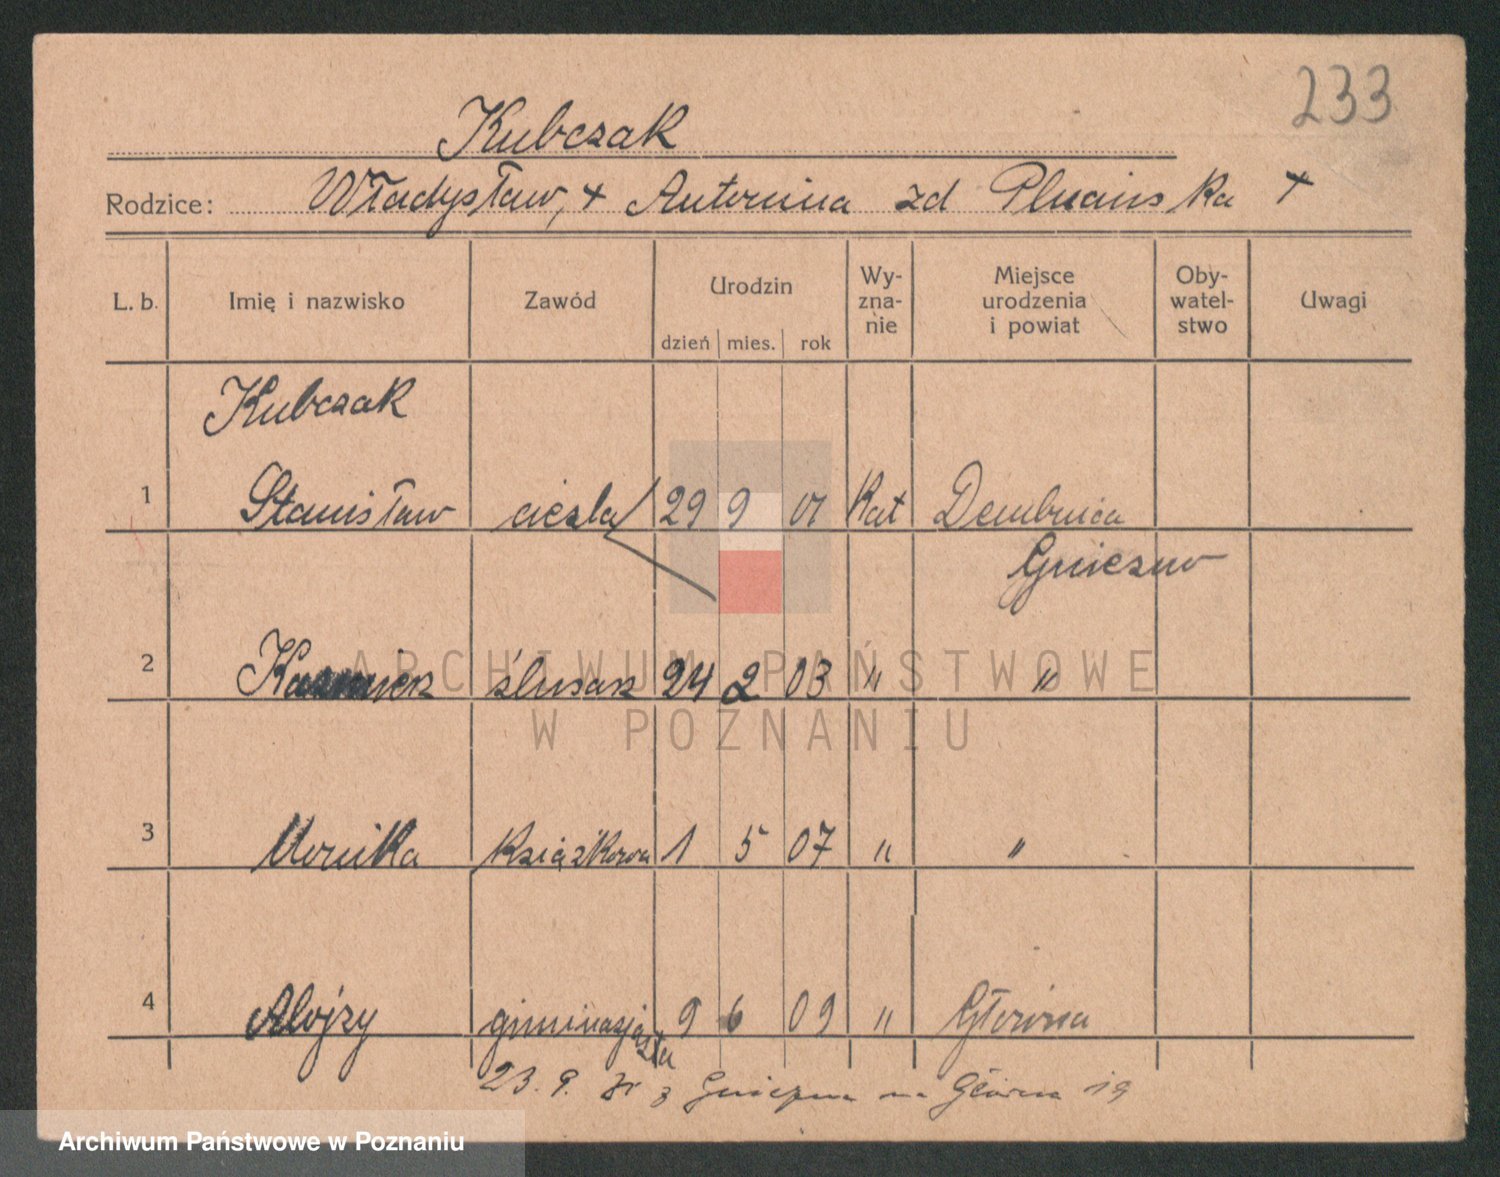 233
Kubczak
Rodzice: Władysław, + Antonina zd +
L. b. Imię i nazwisko Zawód Urodzin dzień mies. rok Wy-zna-nie Miejsce urodzenia i powiat Oby-watel-stwo Uwagi
Kubczak
1 Stanisław cieśla 29 9 01 Kat Dembnica
Gniezno
2 Kazimierz ślusarz 24 2 03 " "
ARCHIWUM PAŃSTWOWE
W POZNANIU
3 Monika książkowa 1 5 07 " "
4 Alojzy giminazjasta 9 6 09 " Główna
23. 9. z Gniezna na Główna 19
Archiwum Państwowe w Poznaniu